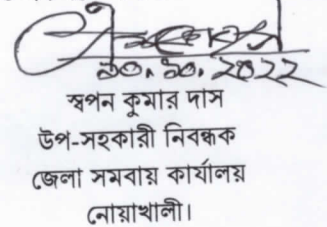 ২০.১০.২০২২
স্বপন কুমার দাস
উপ-সহকারী নিবন্ধক
জেলা সমবায় কার্যালয়
নোয়াখালী।